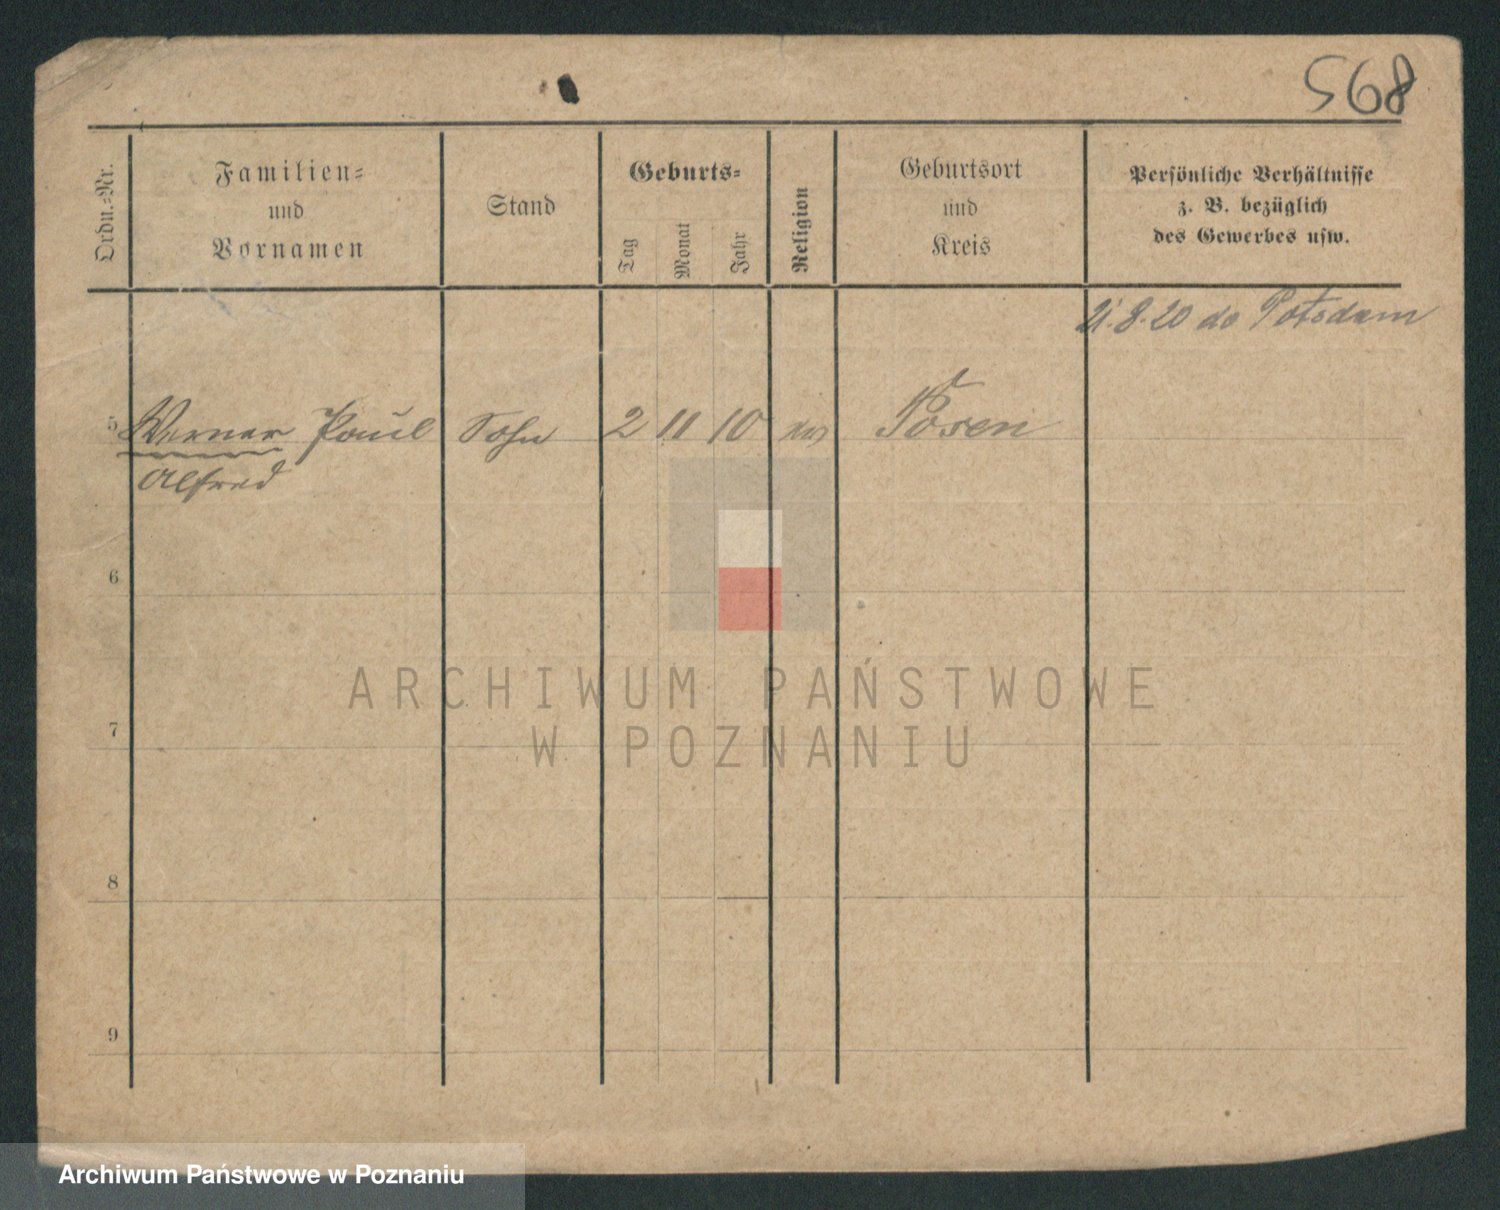 568
Ordn.-Nr.
Familien-
und
Vornamen
Stand
Geburts-
Tag
Monat
Jahr
Religion
Geburtsort
und
Kreis
Persönliche Verhältnisse
z. B. bezüglich
des Gewerbes usw.
21.8.20 do Potsdam
5 Werner Paul Sohn 2 11 10 Posen
Alfred
6
7
8
9
ARCHIWUM PAŃSTWOWE
W POZNANIU
Archiwum Państwowe w Poznaniu